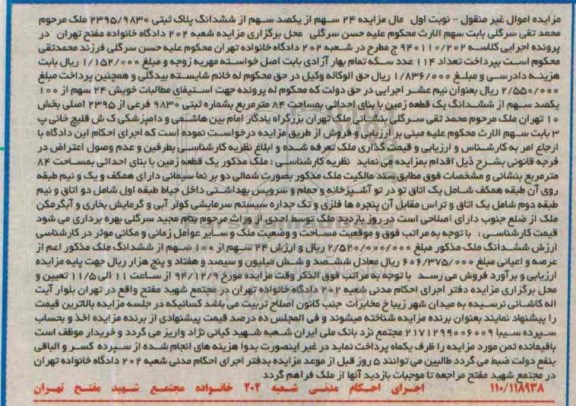 مزایده اموال غیر منقول - نوبت اول مال مزایده ۲۴ سهم از یکصد سهم از ششدانگ پلاک ثبتی ۲۳۹۵/۹۸۳۰ ملک مرحوم
محمد تقی سرگلی بابت سهم الارث محکوم علیه حسن سرگلی محل برگزاری مزایده شعبه ۲۰۲ دادگاه خانواده مفتح تهران در
پرونده اجرایی کلاسه ۹۴۰۱۱۰/۲۰۲ ج مطرح در شعبه ۲۰۲ دادگاه خانواده تهران محکوم علیه حسن سرگلی فرزند محمدتقی
محکوم است بپرداخت تعداد ۱۱۴ عدد سکه تمام بهار آزادی بابت اصل خواسته مهریه زوجه و مبلغ ۱/۱۵۲/۰۰۰ ریال بابت
هزینه دادرسی و مبلغ ۱/۸۳۶/۰۰۰ ریال حق الوکاله وکیل در حق محکوم له خانم شایسته بیدگلی و همچنین پرداخت مبلغ
۲/۵۵۰/۰۰۰ ریال بعنوان نیم عشر اجرایی در حق دولت که محکوم له پرونده جهت استیفای مطالبات خویش ۲۴ سهم از ۱۰۰
یکصد سهم از ششدانگ یک قطعه زمین با بنای احداثی بمساحت ۸۴ مترمربع بشماره ثبتی ۹۸۳۰ فرعی از ۲۳۹۵ اصلی بخش
۱۰ تهران ملک مرحوم محمد تقی سرگلی بنشانی ملک تهران بزرگراه یادگار امام بین هاشمی و دامپزشکی ک ش قلیچ خانی پ
۳ بابت سهم الارث محکوم علیه مبنی بر ارزیابی و فروش از طریق مزایده درخواست نموده است که اجرای احکام این دادگاه با
ارجاع امر به کارشناس و ارزیابی و قیمت گذاری ملک تعرفه شده و ابلاغ نظریه کارشناسی بطرفین و عدم وصول اعتراض در
فرجه قانونی بشرح ذیل اقدام بمزایده می نماید نظریه کارشناسی : ملک مذکور یک قطعه زمین با بنای احداثی بمساحت ۸۴
مترمربع بنشانی و مشخصات فوق مطابق سند مالکیت ملک مذکور بصورت شمالی دو بر نما سیمانی دارای همکف و یک و نیم طبقه
روی آن طبقه همکف شامل یک اتاق تو در تو آشپزخانه و حمام و سرویس بهداشتی داخل حیاط طبقه اول شامل دو اتاق و نیم
طبقه دوم شامل یک اتاق و تراس مقابل آن پنجره ها فلزی و تک جداره سیستم سرمایشی کولر آبی و گرمایش بخاری و آبگرمکن
ملک از ضلع جنوب دارای اصلاحی است در روز بازدید ملک توسط احدی از وراث مرحوم بنام مجید سرگلی بهره برداری می شود
قیمت کارشناسی : با توجه به مراتب فوق و موقعیت مساحت و وضعیت ملک و سایر عوامل زمانی و مکانی موثر در کارشناسی
ارزش ششدانگ ملک مذکور مبلغ ۲/۵۲۰/۰۰۰/۰۰۰ ریال و ارزش ۲۴ سهم از ۱۰۰ سهم از ششدانگ ملک مذکور اعم از
عرصه و اعیانی مبلغ ۶۰۶/۳۷۵/۰۰۰ ریال معادل ششصد و شش میلیون و سیصد و هفتاد و پنج هزار ریال جهت پایه مزایده
ارزیابی و برآورد فروش می رسد با توجه به مراتب فوق الذکر وقت مزایده مورخ ۹۴/۱۲/۹ از ساعت ۱۱ الی ۱۱/۵ تعیین و
محل برگزاری مزایده دفتر اجرای احکام مدنی شعبه ۲۰۲ دادگاه خانواده تهران در مجتمع شهید مفتح واقع در تهران بلوار آیت
اله کاشانی نرسیده به میدان شهر زیبا خ مخابرات جنب کانون اصلاح تربیت می باشد کسانیکه در جلسه مزایده بالاترین قیمت
را پیشنهاد نمایند بعنوان برنده مزایده شناخته میشوند و فی المجلس ده درصد قیمت پیشنهادی از برنده مزایده اخذ و بحساب
سپرده سیبا ۲۱۷۱۲۹۹۰۰۶۰۰۹ مجتمع نزد بانک ملی ایران شعبه شهید کیانی نژاد واریز می گردد و خریدار موظف است
باقیمانده ثمن مورد مزایده را ظرف یکماه پرداخت نماید در غیر اینصورت بدوا هزینه های انجام شده از سپرده کسر و الباقی
بنفع دولت ضبط می گردد طالبین می توانند ۵ روز قبل از موعد مزایده بدفتر اجرای احکام مدنی شعبه ۲۰۲ دادگاه خانواده تهران
در مجتمع شهید مفتح مراجعه تا موجبات بازدید آنها از ملک فراهم گردد
۱۱۰/۱۱۸۹۳۸ اجرای احکام مدنی شعبه ۲۰۲ خانواده مجتمع شهید مفتح تهران